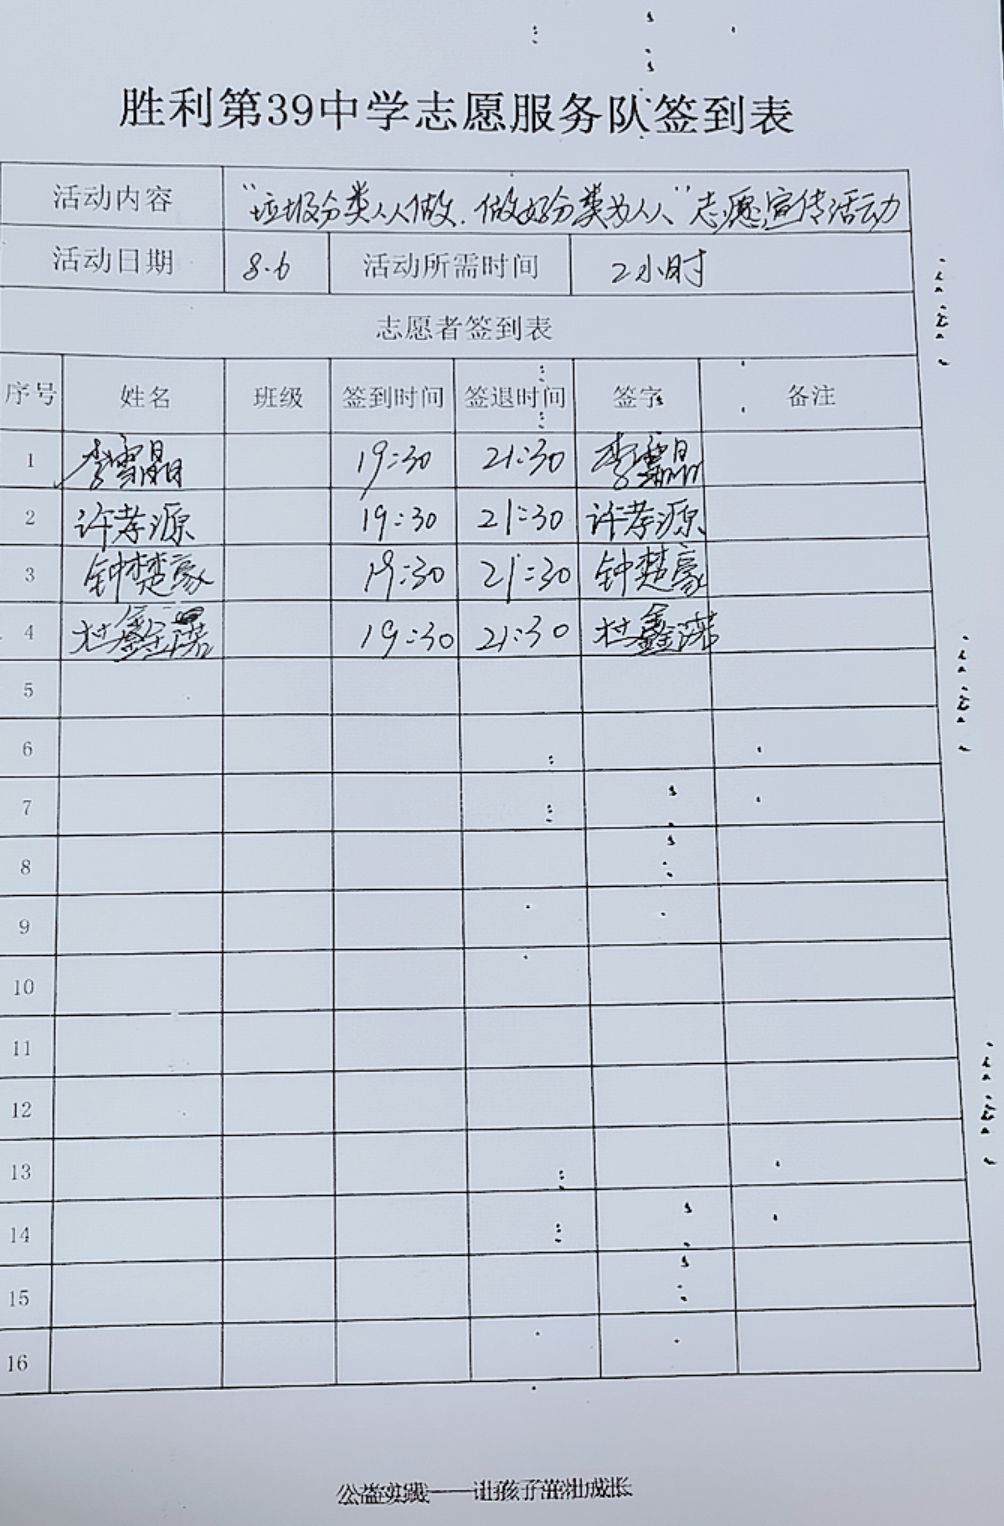 胜利第39中学志愿服务队签到表
活动内容 “垃圾分类人人做,做好分类为人人”志愿宣传活动
活动日期 8.6 活动所需时间 2小时
志愿者签到表
序号 姓名 班级 签到时间 签退时间 签字 备注
1 李雪晶 19:30 21:30 李雪晶
2 许孝源 19:30 21:30 许孝源
3 钟楚豪 19:30 21:30 钟楚豪
4 杜鑫诺 19:30 21:30 杜鑫诺
5
6
7
8
9
10
11
12
13
14
15
16
公益实践——让孩子茁壮成长